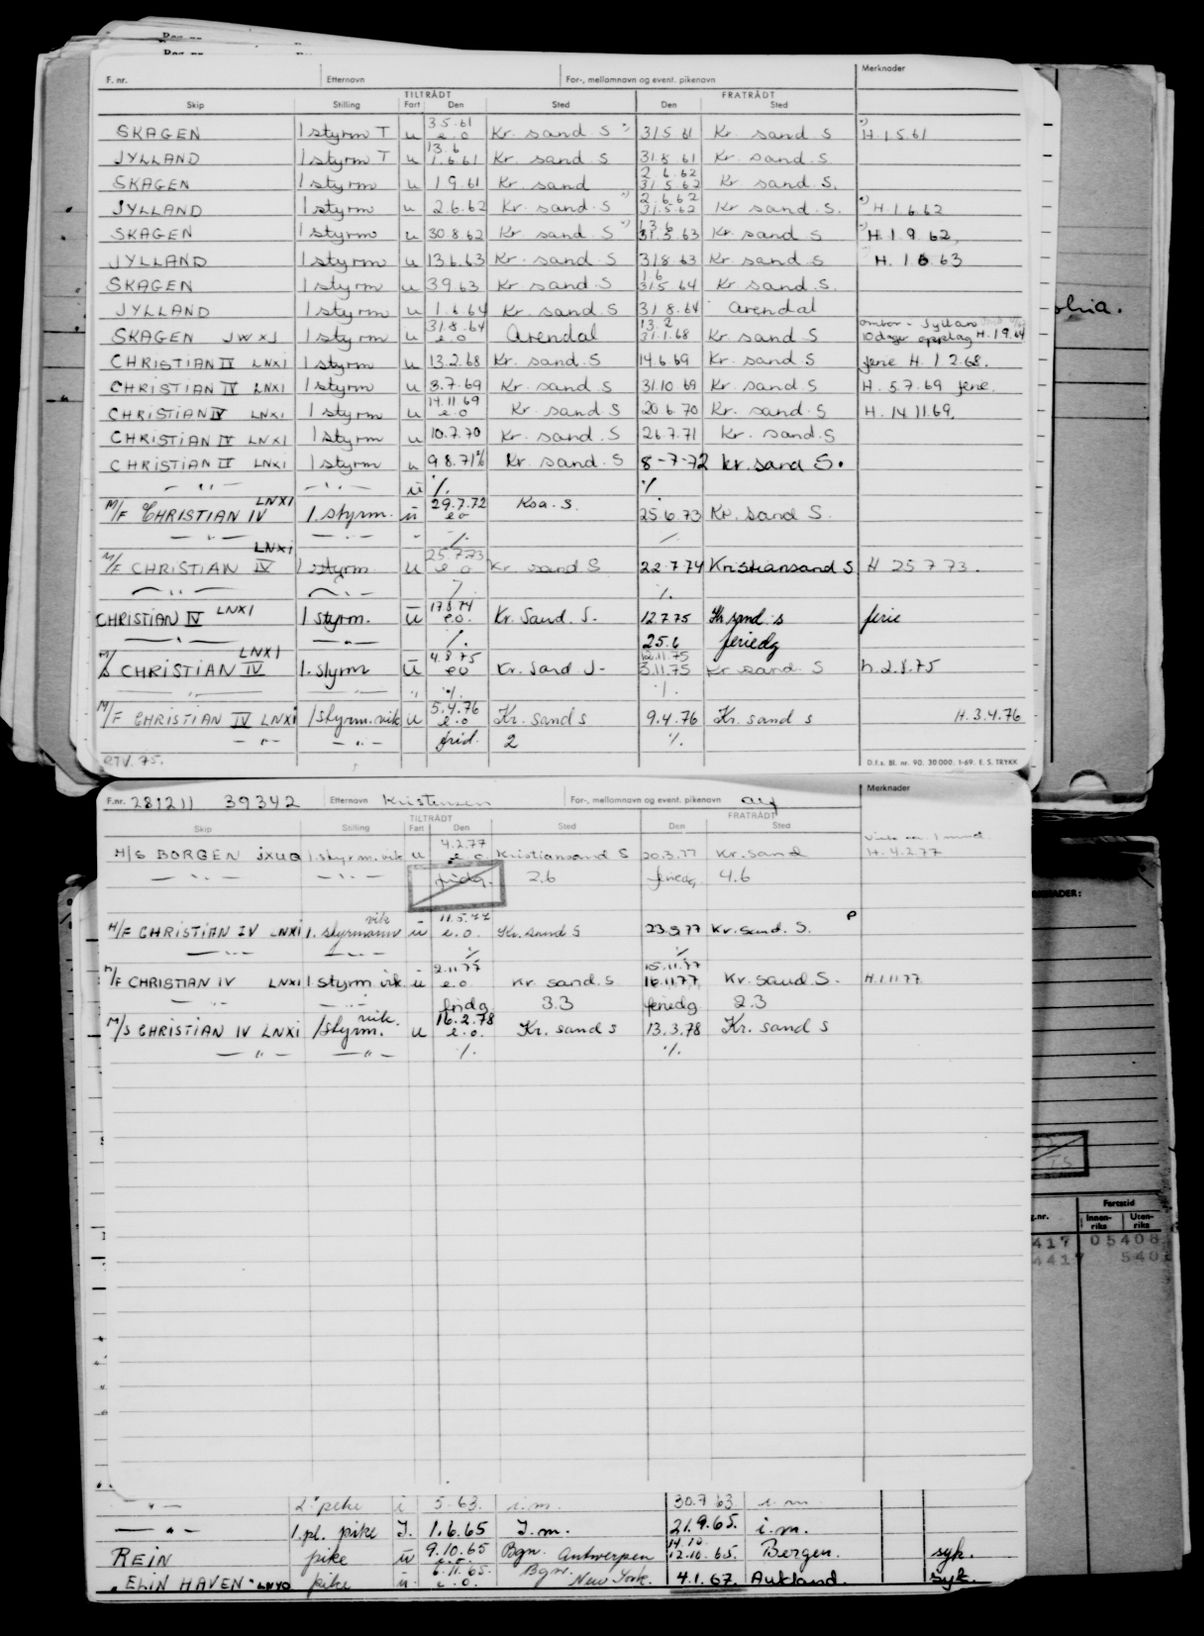 F. nr. Etternavn For-, mellomnavn og event. pikenavn Merknader
TILTRÅDT FRATRÅDT
Skip Stilling Fart Den Sted Den Sted
3.5.61
SKAGEN 1 styrm T u e.o Kr. sand S 31.5.61 Kr. sand S H.1.5.61
13.6
JYLLAND 1 styrm T u 1.6.61 Kr. sand. S 31.8.61 Kr. sand S
2.6.62
SKAGEN 1 styrm u 1.9.61 Kr. sand 31.5.62 Kr. sand. S.
2.6.62
JYLLAND 1 styrm u 2.6.62 Kr. sand. S 31.5.62 Kr sand. S. H.1.6.62
13.6
SKAGEN 1 styrm u 30.8.62 Kr. sand S 31.5.63 Kr. sand S H.1.9.62.
JYLLAND 1 styrm u 13.6.63 Kr. sand S 31.8.63 Kr. sand S H.1.6.63
1.6
SKAGEN 1 styrm u 3.9.63 Kr. sand S 31.5.64 Kr. sand S.
JYLLAND 1 styrm u 1.6.64 Kr. sand. S 31.8.64 Arendal
31.8.64 13.2
SKAGEN JWXJ 1 styrm u e.o Arendal 31.1.68 Kr. sand S 10 dager opplag H.1.9.64
CHRISTIAN IV LNXI 1 styrm u 13.2.68 Kr. sand. S 14.6.69 Kr. sand S ferie H. 1.2.68.
CHRISTIAN IV LNXI 1 styrm u 8.7.69 Kr. sand S 31.10.69 Kr. sand S H. 5.7.69 ferie.
14.11.69
CHRISTIAN IV LNXI 1 styrm u e.o Kr. sand S 20.6.70 Kr. sand. S H. 14.11.69.
CHRISTIAN IV LNXI 1 styrm u 10.7.70 Kr. sand. S 26.7.71 Kr. sand. S
CHRISTIAN IV LNXI 1 styrm u 9.8.71 Kr. sand. S 8-7-72 kr. sand S.
— " — — " — u ٪ ٪
LNXI 29.7.72
M/F CHRISTIAN IV 1. styrm. u eo Ksa. S. 25.6.73 Kr. sand S.
— " — — " — ٪ ٪
LNXI 25.7.73
M/F CHRISTIAN IV 1 styrm. u e o Kr sand S 22.7.74 Kristiansand S H 25.7.73.
— " — — " — ٪ ٪
17.8.74
CHRISTIAN IV LNXI 1 styrm. u e.o. Kr. Sand. S. 12.7.75 Kr sand. s ferie
— " — — " — ٪ 25.6 feriedg
LNXI 4.8.75 12.11.75
M/S CHRISTIAN IV 1. styrm u eo Kr. Sand S- 3.11.75 Kr sand. S h.2.8.75
— " — — " — ٪ ٪
5.4.76
M/F CHRISTIAN IV LNXI 1 styrm. vik u e.o Kr. sand s 9.4.76 Kr. sand s H.3.4.76
— " — — " — frid. 2 ٪
RTV. 75. D.f.s. Bl. nr. 90. 30.000. 1-69. E. S. TRYKK
F.nr. 281211 39342 Etternavn Kristensen For-, mellomnavn og event. pikenavn Alf Merknader
TILTRÅDT FRATRÅDT
Skip Stilling Fart Den Sted Den Sted
4.2.77
M/S BORGEN JXUQ 1. styrm. vik u e.o Kristiansand S 20.3.77 Kr. sand H.4.2.77
— " — — " — fridg. 2.6 feriedg. 4.6
vik 11.5.77 P
M/F CHRISTIAN IV LNXI 1. styrmann u e.o. Kr. sand S 23.5.77 Kr. sand. S.
— " — — " — ٪ ٪
2.11.77 15.11.77
M/F CHRISTIAN IV LNXI 1 styrm. vik u e.o Kr sand. S 16.11.77 Kr. sand S. H.1.11.77
— " — — " — fridg 3.3 feriedg 2.3
vik. 16.2.78
M/S CHRISTIAN IV LNXI 1 styrm. u e.o. Kr. sand s 13.3.78 Kr. sand s
— " — — " — ٪ ٪
Fartstid
Innen-riks Uten-riks
417 05408
4417 540
— " — 2. pike i 5.63. i.m. 30.7.63. i.m
— " — 1. pl. pike I. 1.6.65 I.m. 21.9.65. i.m.
14.10
REIN pike u 9.10.65 Bgn. Antwerpen 12.10.65. Bergen. syk.
6.11.65.
"ELIN HAVEN" LNYO pike u e.o. Bgn. New York. 4.1.67. Aukland. syk.